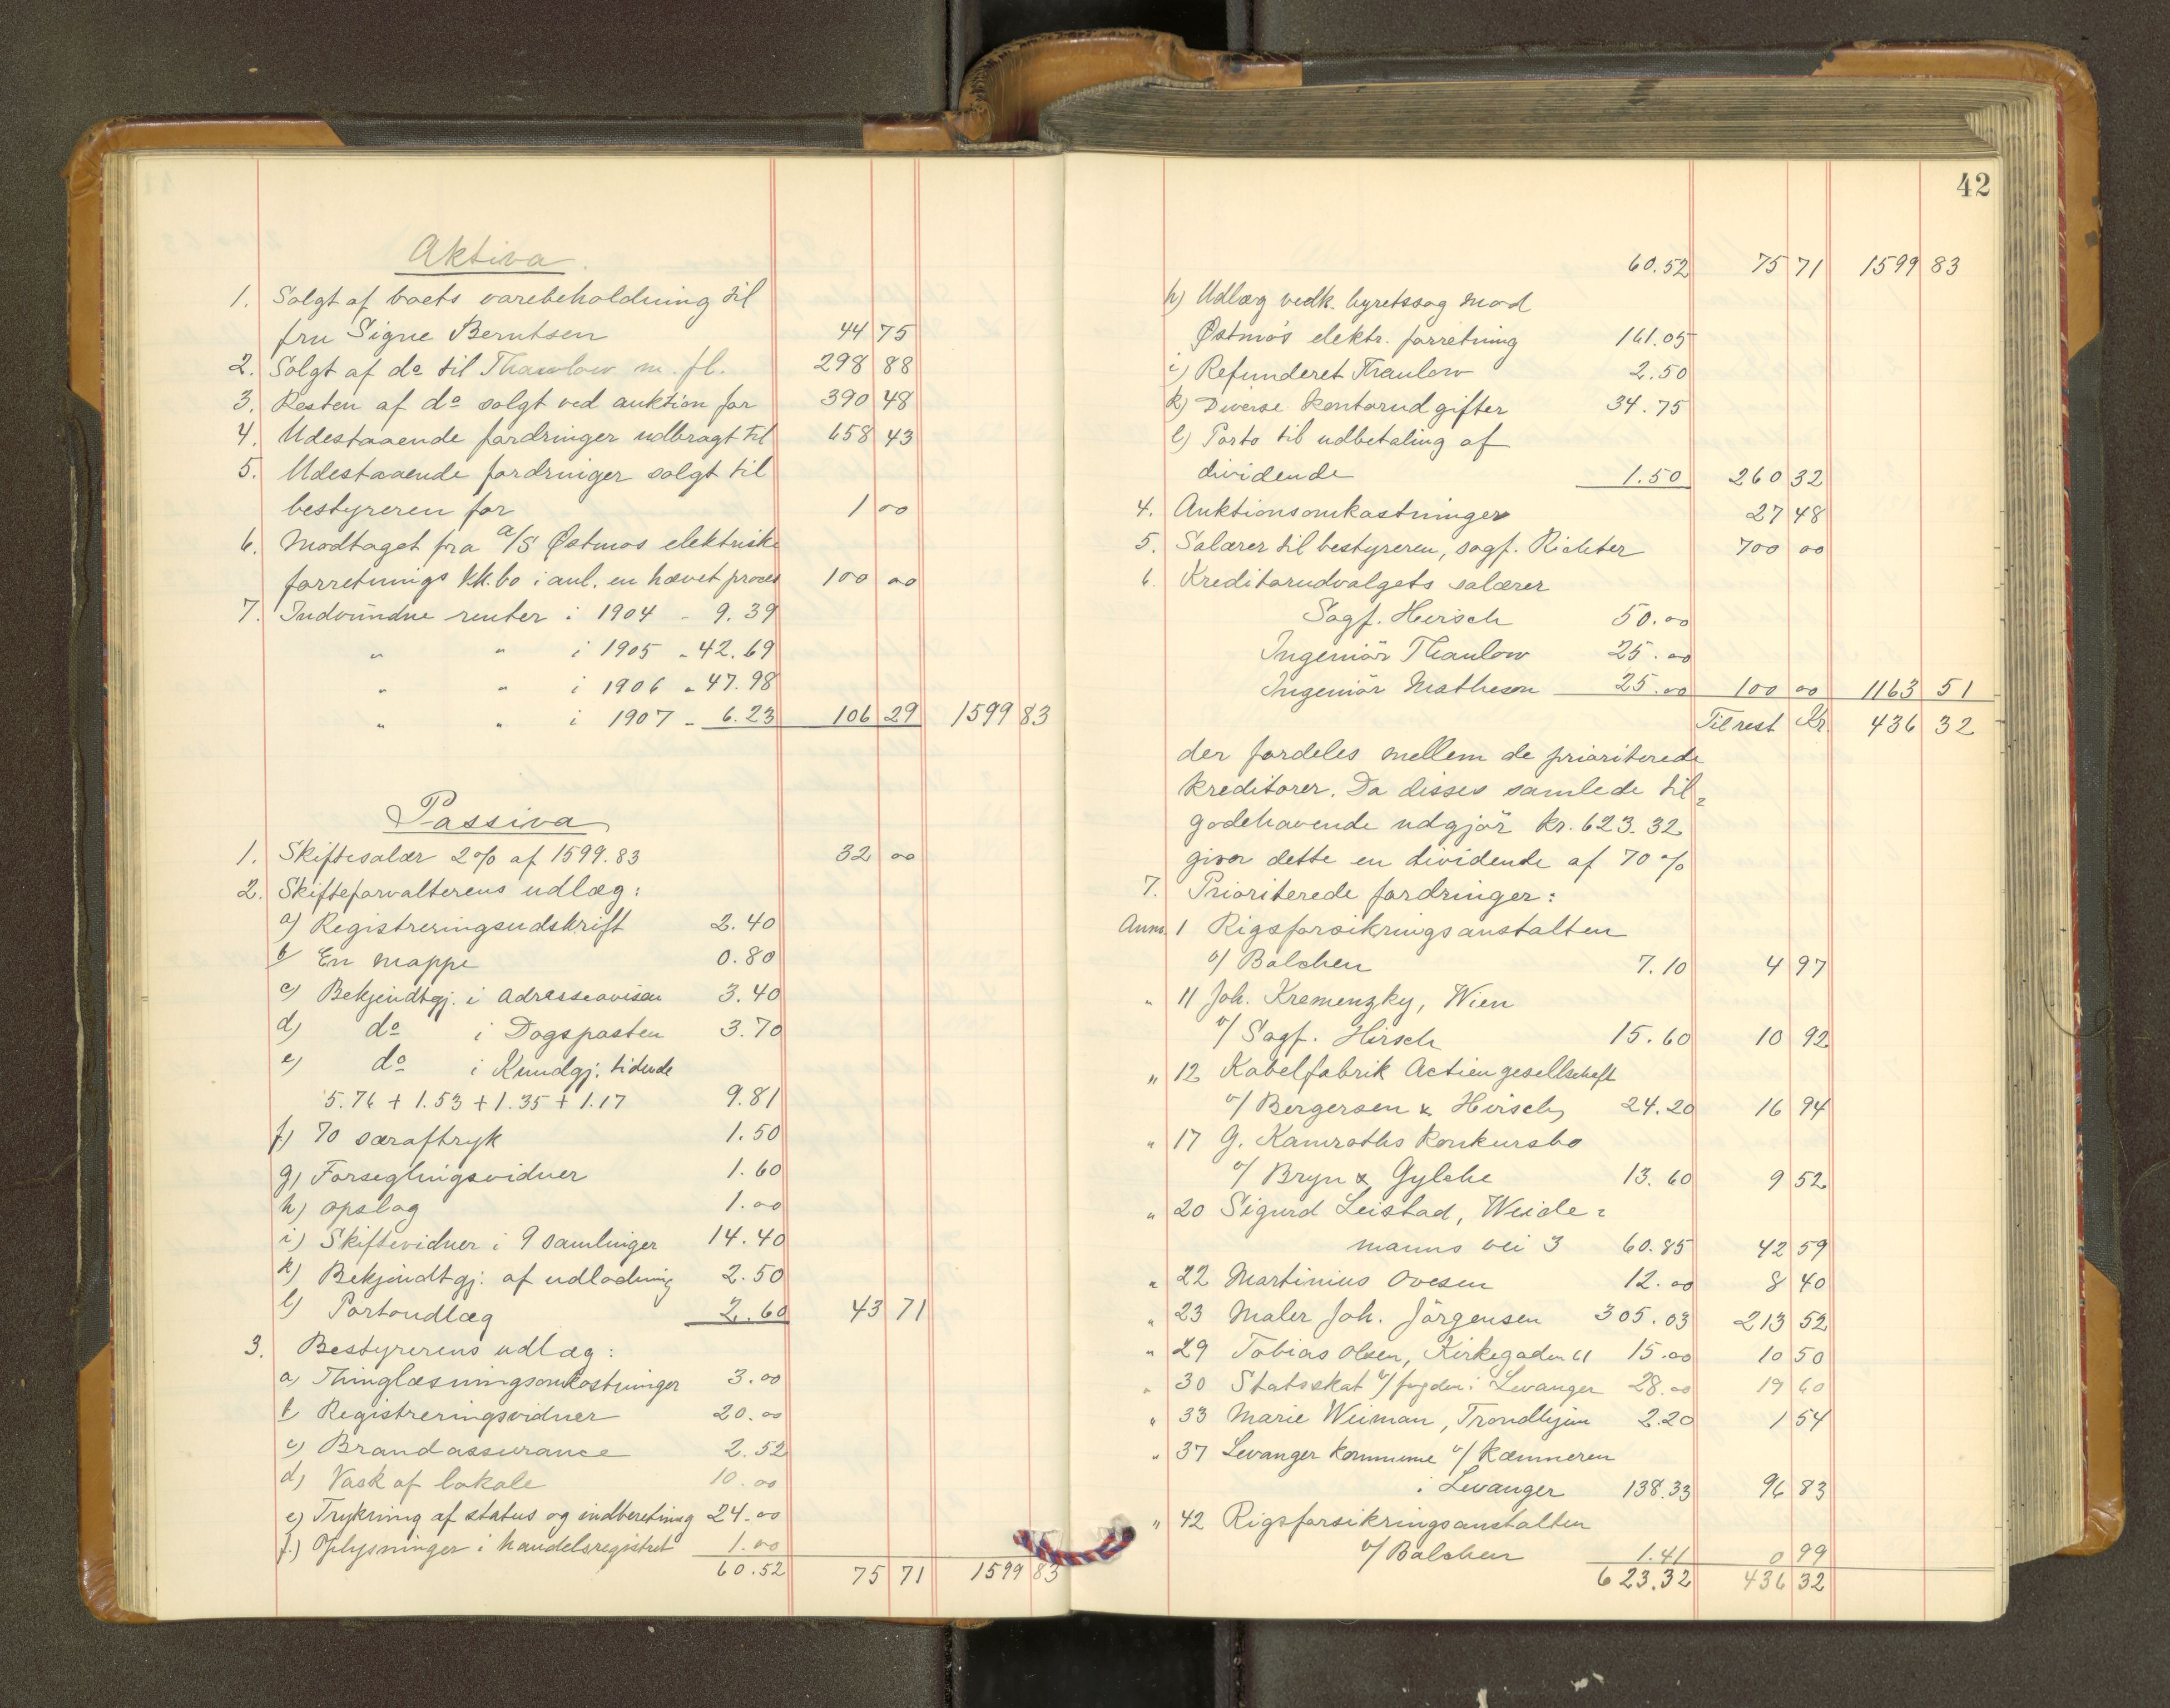 Aktiva.
1. Solgt af boets varebeholdning til
fru Signe Berntsen 44 75
2. Solgt af do til Thaulow m. fl. 298 88
3. Resten af do solgt ved auktion for 390 48
4. Udestaaende fordringer udbragt til 658 43
5. Udestaaende fordringer solgt til
bestyreren for 1 00
6. Modtaget fra A/S Østmos elektriske
forretnings kk.bo i anl. en hævet proces 100 00
7. Indvundne renter i 1904 - 9.39
" " i 1905 - 42.69
" " i 1906 - 47.98
" " i 1907 - 6.23 106 29 1599 83
Passiva
1. Skiftesalær 2% af 1599.83 32 00
2. Skifteforvalterens udlæg:
a) Registreringsudskrift 2.40
b) En mappe 0.80
c) Bekjendtgj. i Adresseavisen 3.40
d) do i Dagsposten 3.70
e) do i Kundgj. tidende
5.76 + 1.53 + 1.35 + 1.17 9.81
f) 70 særaftryk 1.50
g) Forseglingsvidner 1.60
h) opslag 1.00
i) Skiftevidner i 9 samlinger 14.40
k) Bekjendtgj. af udlodning 2.50
l) Portoudlæg 2.60 43 71
3. Bestyrerens udlæg:
a) Thinglæsningsomkostninger 3.00
b) Registreringsvidner 20.00
c) Brandassurance 2.52
d) Vask af lokale 10.00
e) Trykning af status og indberetning 24.00
f.) Oplysninger i handelsregistret 1.00
60.52 75 71 1599 83
42
60.52 75 71 1599 83
h) Udlæg vedk. byretssag mod
Østmo's elektr. forretning 161.05
i) Refunderet Thaulow 2.50
k) Diverse kontorudgifter 34.75
l) Porto til udbetaling af
dividende 1.50 260 32
4. Auktionsomkostninger 27 48
5. Salærer til bestyreren, sagf. Richter 700 00
6. Kreditorudvalgets salærer
Sagf. Hirsch 50.00
Ingeniör Thaulow 25.00
Ingeniör Matheson 25.00 100 00 1163 51
Til rest Kr. 436 32
der fordeles mellem de prioriterede
kreditorer. Da disses samlede til=
godehavende udgjör kr. 623.32
giver dette en dividende af 70 %
7. Prioriterede fordringer:
Anm. 1 Rigsforsikringsanstalten
v/ Balchen 7.10 4 97
" 11 Joh. Kremenzky, Wien
v/ Sagf. Hirsch 15.60 10 92
" 12 Kabelfabrik Actiengesellschaft
v/ Bergersen & Hirsch, 24.20 16 94
" 17 G. Kamroths konkursbo
v/ Bryn & Gylche 13.60 9 52
" 20 Sigurd Leistad, Weide=
manns vei 3 60.85 42 59
" 22 Martinius Ovesen 12.00 8 40
" 23 Maler Joh. Jörgensen 305.03 213 52
" 29 Tobias Olsen, Kirkegaden 61 15.00 10 50
" 30 Statsskat v/ fogden i Levanger 28.00 19 60
" 33 Marie Weiman, Trondhjem 2.20 1 54
" 37 Levanger kommune v/ Kæmneren
i Levanger 138.33 96 83
" 42 Rigsforsikringsanstalten
v/ Balchen 1.41 0 99
623.32 436 32